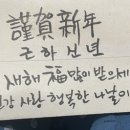 謹賀新年
근하신년
새해 福 많이 받으세
강 사랑 행복한 나날이